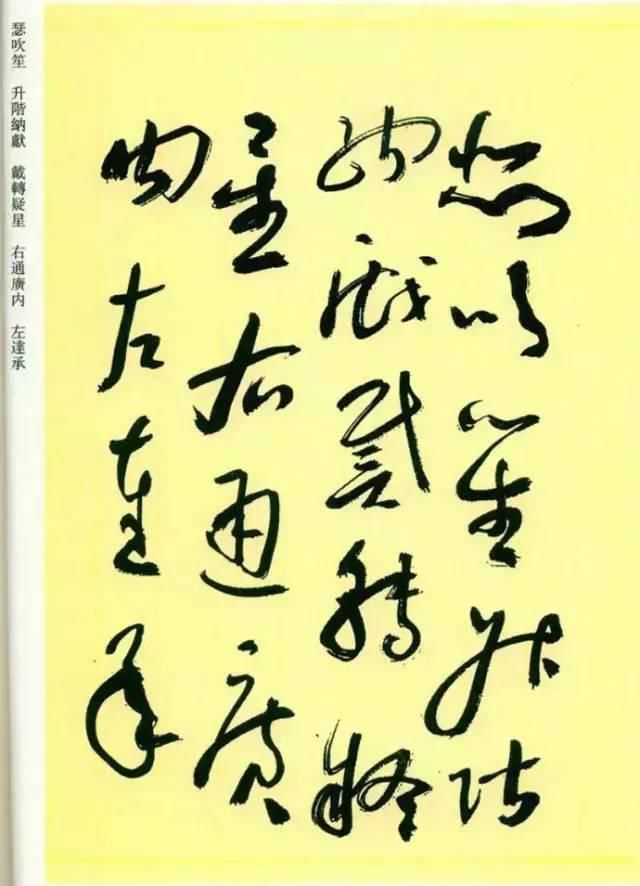 瑟吹笙升階
納獻戴轉疑
星右通廣
内左達承
瑟吹笙 升階納獻 戴轉疑星 右通廣内 左達承